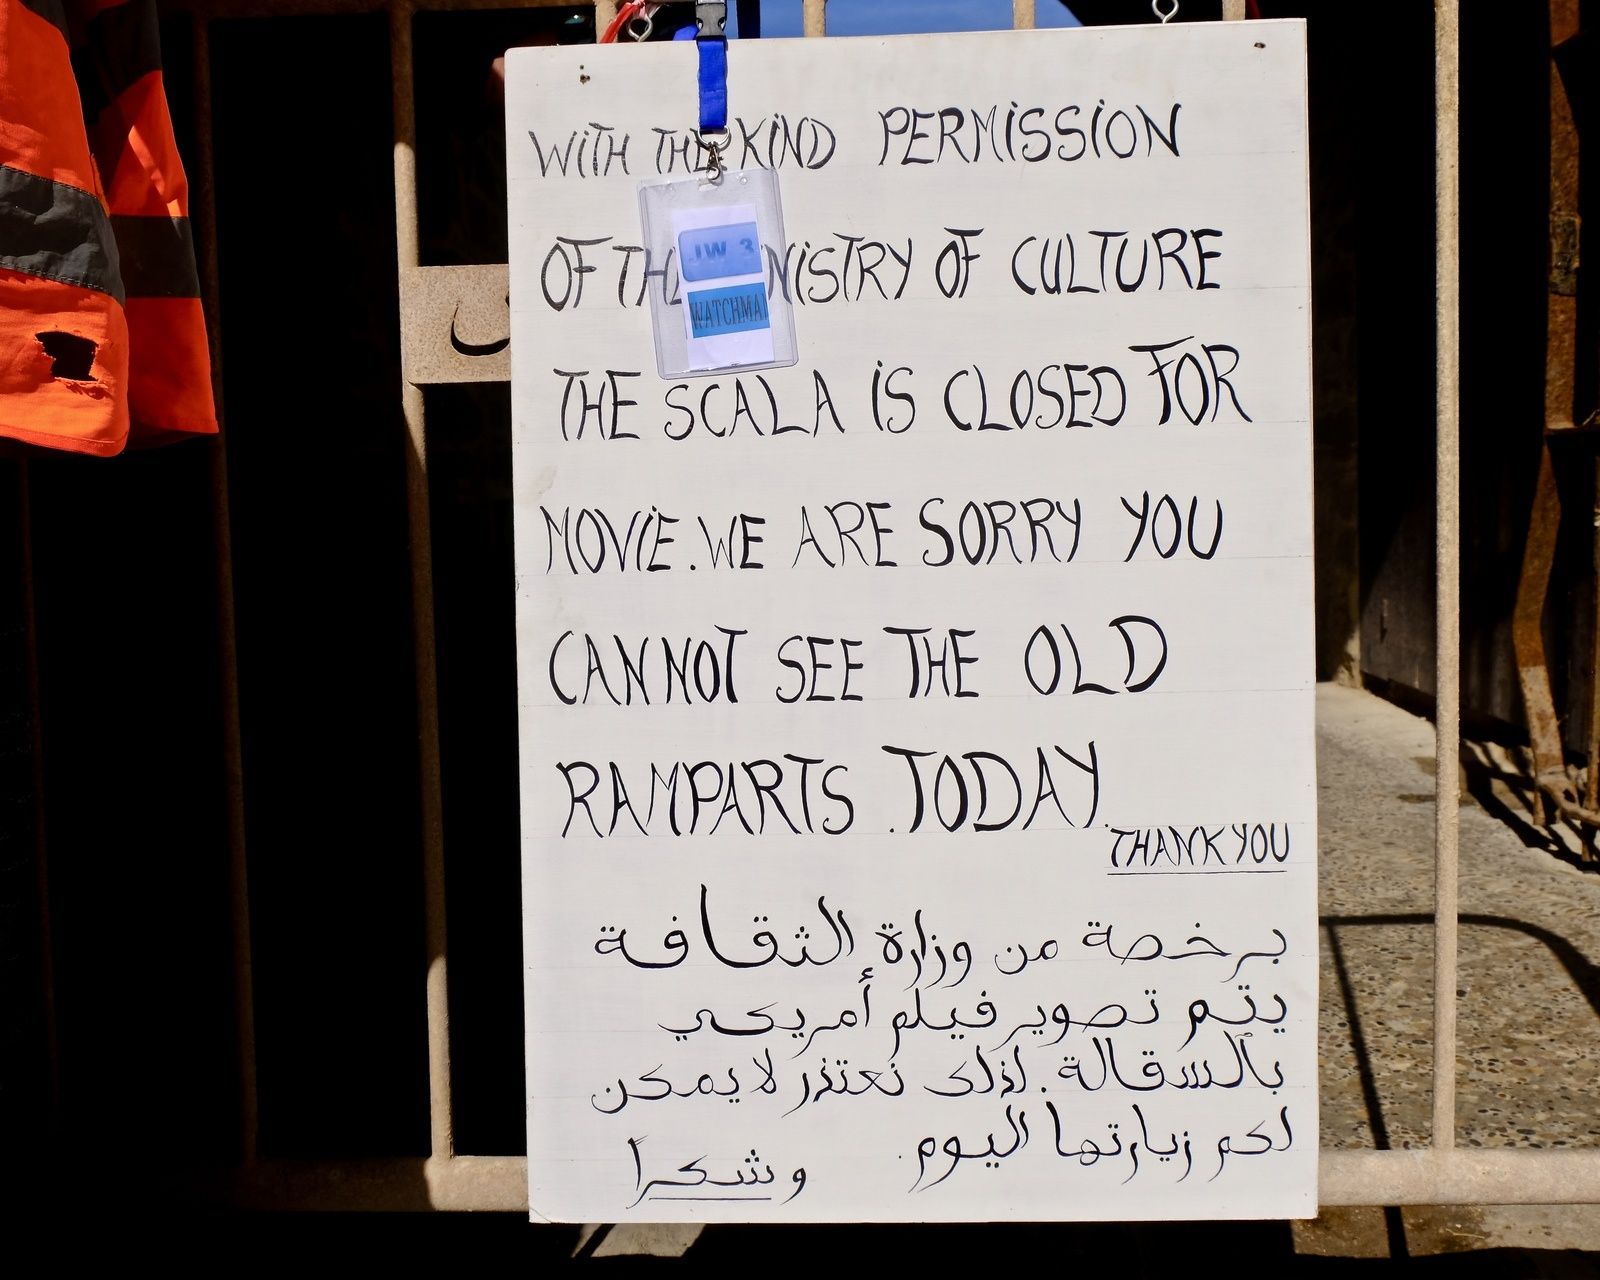 WITH THE KIND PERMISSION
OF THE MINISTRY OF CULTURE
JW 3
WATCHMA
THE SCALA IS CLOSED FOR
MOVIE. WE ARE SORRY YOU
CANNOT SEE THE OLD
RAMPARTS .TODAY.
THANK YOU
برخصة من وزارة الثقافة
يتم تصوير فيلم أمريكي
بالسقالة. لذلك نعتذر لا يمكن
لكم زيارتها اليوم.
وشكراً